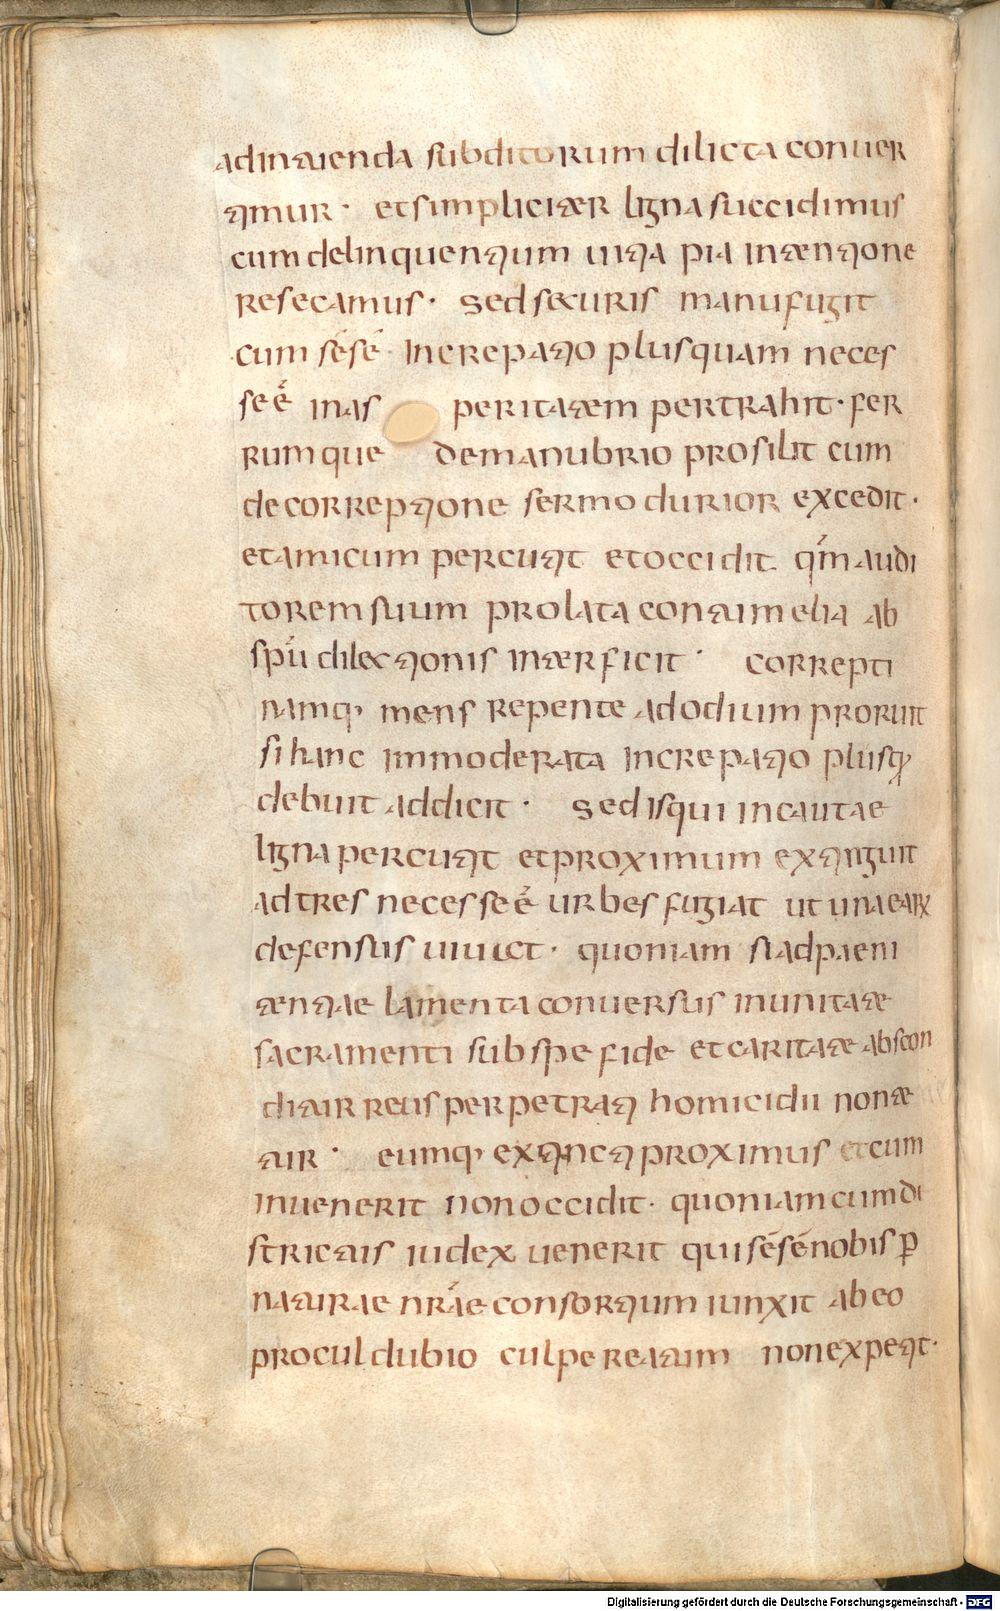 ad intuenda subditorum dilicta conuer
timur · et simpliciter ligna succidimus
cum delinquentium uitia pia intentione
resecamus · sed securis manu fugit
cum sēsē increpatio plus quam neces
seē inas peritatem pertrahit · fer
rumque de manubrio prosilit cum
de correptione sermo durior excedit ·
et amicum percutit et occidit qm̄ audi
torem suum prolata contumelia ab
spū dilectionis interficit · correpti
namq; mens repente ad odium proruit
si hanc immoderata increpatio plusq;
debuit addicit · sed is qui incautae
ligna percutit et proximum extinguit
ad tres necesseē urbes fugiat ut una earx
defensus uiuct · quoniam si ad paeni
tentiae lamenta conuersus in unitate
sacramenti sub spe fide et caritate abscon
ditur reus perpetrati homicidii non te
tur · eumq; extincti proximus et cum
inuenerit non occidit · quoniam cum di
strictus iudex uenerit qui sēsē nobis p
naturae nrāe consortium iunxit ab eo
procul dubio culpe reatum non expetit ·
Digitalisierung gefördert durch die Deutsche Forschungsgemeinschaft - DFG